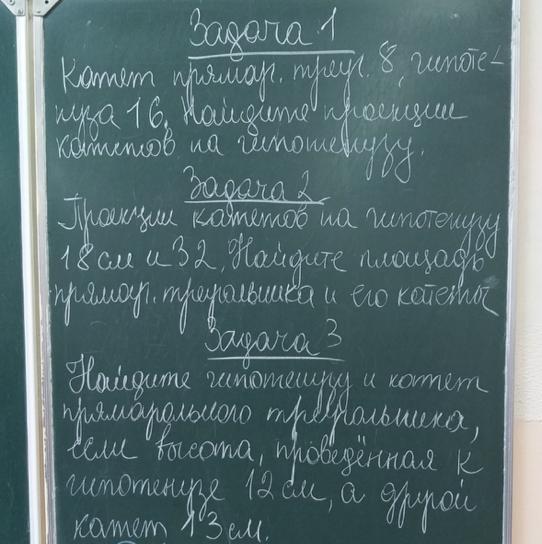 Задача 1
Катет прямоуг. треуг. 8, гипоте-
нуза 16. Найдите проекции
катетов на гипотенузу.
Задача 2
Проекции катетов на гипотенузу
18 см и 32. Найдите площадь
прямоуг. треугольника и его катеты
Задача 3
Найдите гипотенузу и катет
прямоугольного треугольника,
если высота, проведённая к
гипотенузе 12 см, а другой
катет 13 см.